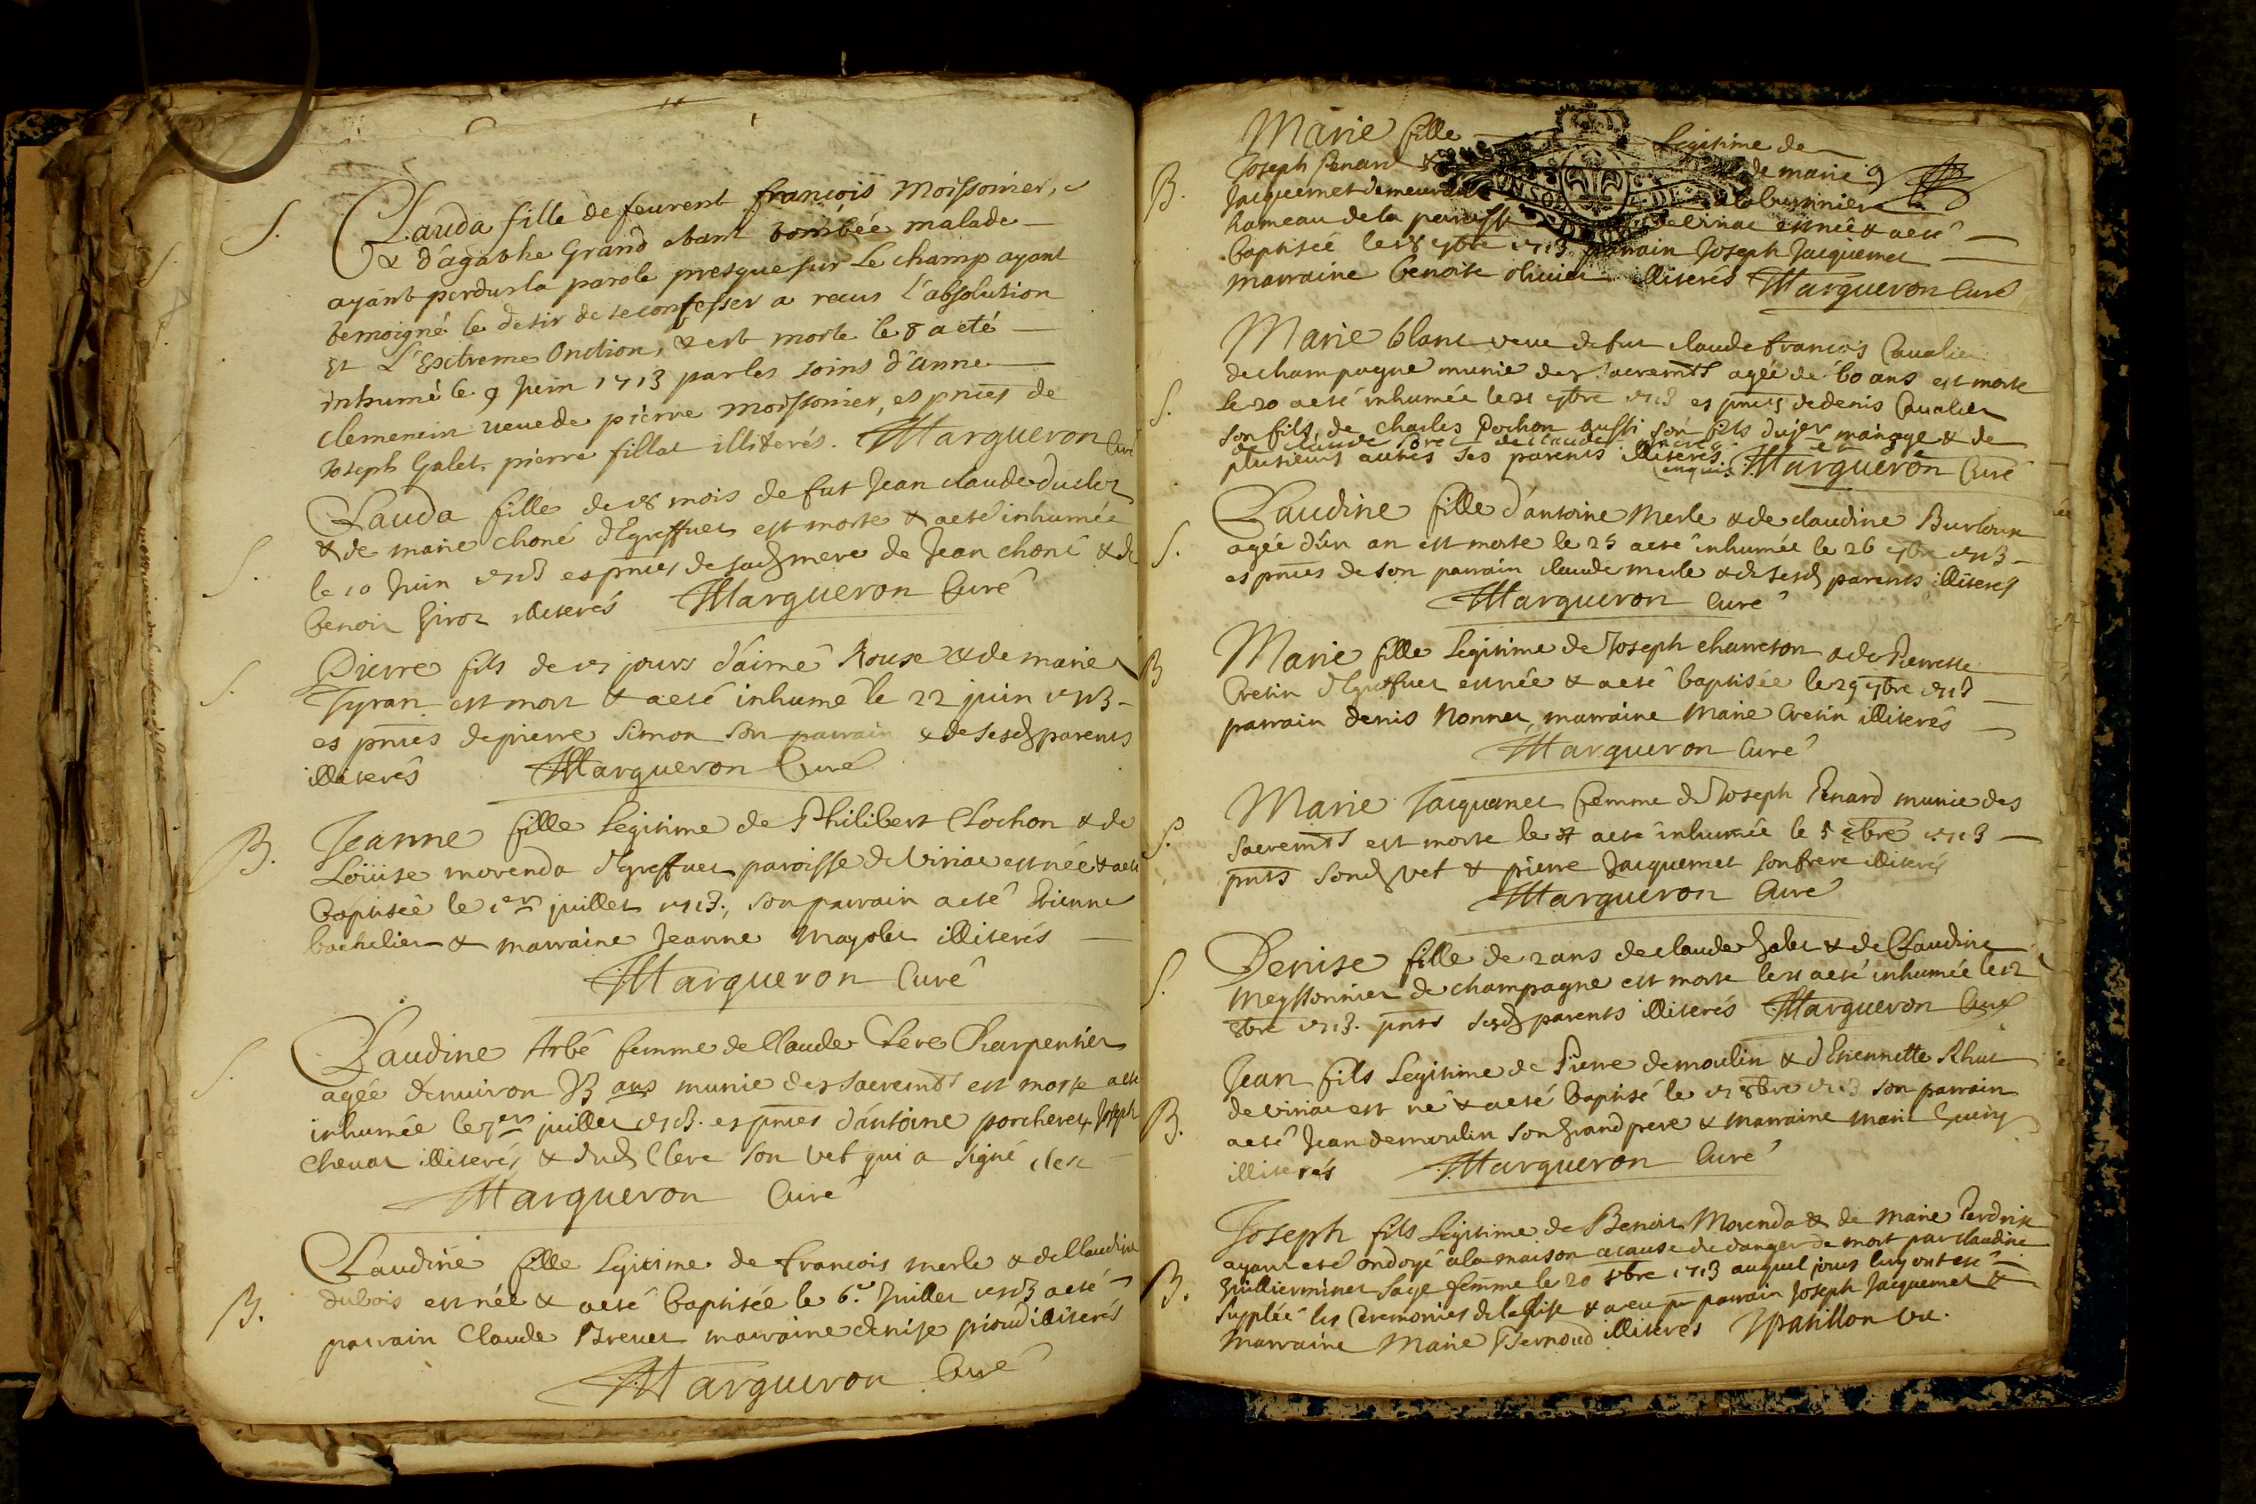 S. Clauda fille de feu rent françois Moissonier,
& d'agathe Grand etant tombée malade
ayant perdus la parole presque sur Le champ ayant
temoigné le desir de se confesser a receus l'absolution
Et L'Extreme Onction, & est morte le 8 a eté
inhumé le 9 Juin 1713 par les soins d'anne
clemencin veuve de pierre moissonier, es pnces de
Joseph Galet, pierre fillat illiterés. Margueron Curé
S. Clauda fille de 18 mois de fut Jean claude duclos
& de marie choné d'Egreffuet est morte & a eté inhumée
le 10 Juin 1713 es pnces de sad mere de Jean choné & de
benoit Giroz illiterés Margueron Curé
S. Pierre fils de 15 jours d'aimé Rouse & de marie
Tyran est mort & a eté inhumé le 22 juin 1713
es pnces de pierre simon son parrain & de sesd parents
illiterés Margueron Curé
B. Jeanne fille Legitime de Philibert Clochon & de
Loüise morenda d'Egreffuet paroisse de Viriac est née & a eté
baptisée le 1er juillet 1713., son parrain a eté Etienne
bachelier & marraine Jeanne Mayolet illiterés
Margueron Curé
S. Claudine Arbé femme de Claude Clere Charpentier
agée d'environ 33 ans munie des sacremts est morte a eté
inhumée le 1er juillet 1713. es pnces d'antoine porcheret, Joseph
chevat illiterés & dud Clere son vef qui a signé clere
Margueron Curé
B. Claudine fille Legitime de francois merle & de Claudine
dubois est née & a eté baptisée le 6e Juillet 1713 a eté
parrain Claude Brevet marraine denise prioud illiterés
Margueron Curé
Marie fille Legitime de
B. Joseph Penard & de marie
Jacquemet demeurant a la bussiniere
hameau de la paroisse de viriac est née & a eté
baptisée le 18 7bre 1713 parrain Joseph Jacquemet
marraine benoite olivier illiterés Margueron Curé
Marie blanc veuve de fut claude francois Cavalier
de champagne munie des sacremts agée de 60 ans est morte
S. le 20 a eté inhumée le 21 7bre 1713 es pnces de denis Cavalier
son fils, de charles Pochon aussi son fils du 1er mariage & de
plusieurs autres ses parents illiterés enquis Margueron Curé
Claudine fille d'antoine Merle & de claudine Burloux
S. agée d'un an est morte le 25 a eté inhumée le 26 7bre 1713
es pnces de son parrain claude merle & de sesd parents illiterés
Margueron Curé
B Marie fille Legitime de Joseph charreton & de Pierrette
Cretin d'Egreffuet est née & a eté baptisée le 29 7bre 1713
parrain denis Nonnet, marraine Marie Cretin illiterés
Margueron Curé
Marie Jacquemet femme de Joseph Penard munie des
S. sacremts est morte le 4 a eté inhumée le 5 8bre 1713
pnts sond vef & pierre Jacquemet son frere illiterés
Margueron Curé
Denise fille de 2 ans de claude Galet & de Claudine
S. Meyssonnier de champagne est morte le 11 a eté inhumée le 12
8bre 1713. pnts sesd parents illiterés Margueron Curé
Jean fils Legitime de Pierre demoulin & d'Etiennette Rhut
de viriac est né & a eté baptisé le 15 8bre 1713 son parrain
B. a eté Jean demoulin son grand pere & marraine marie Guiny
illiterés Margueron Curé
Joseph fils Legitime de Benoit Morenda & de marie Perdrix
ayant eté ondoyé a la maison a cause du danger de mort par claudine
B. Guillerminet sage femme le 20 8bre 1713 auquel jour luy ont eté
supléé les Ceremonies de l'eglise & a eu pr parrain Joseph Jacquemet &
marraine Marie Bernoud illiterés Jpatillon vic.